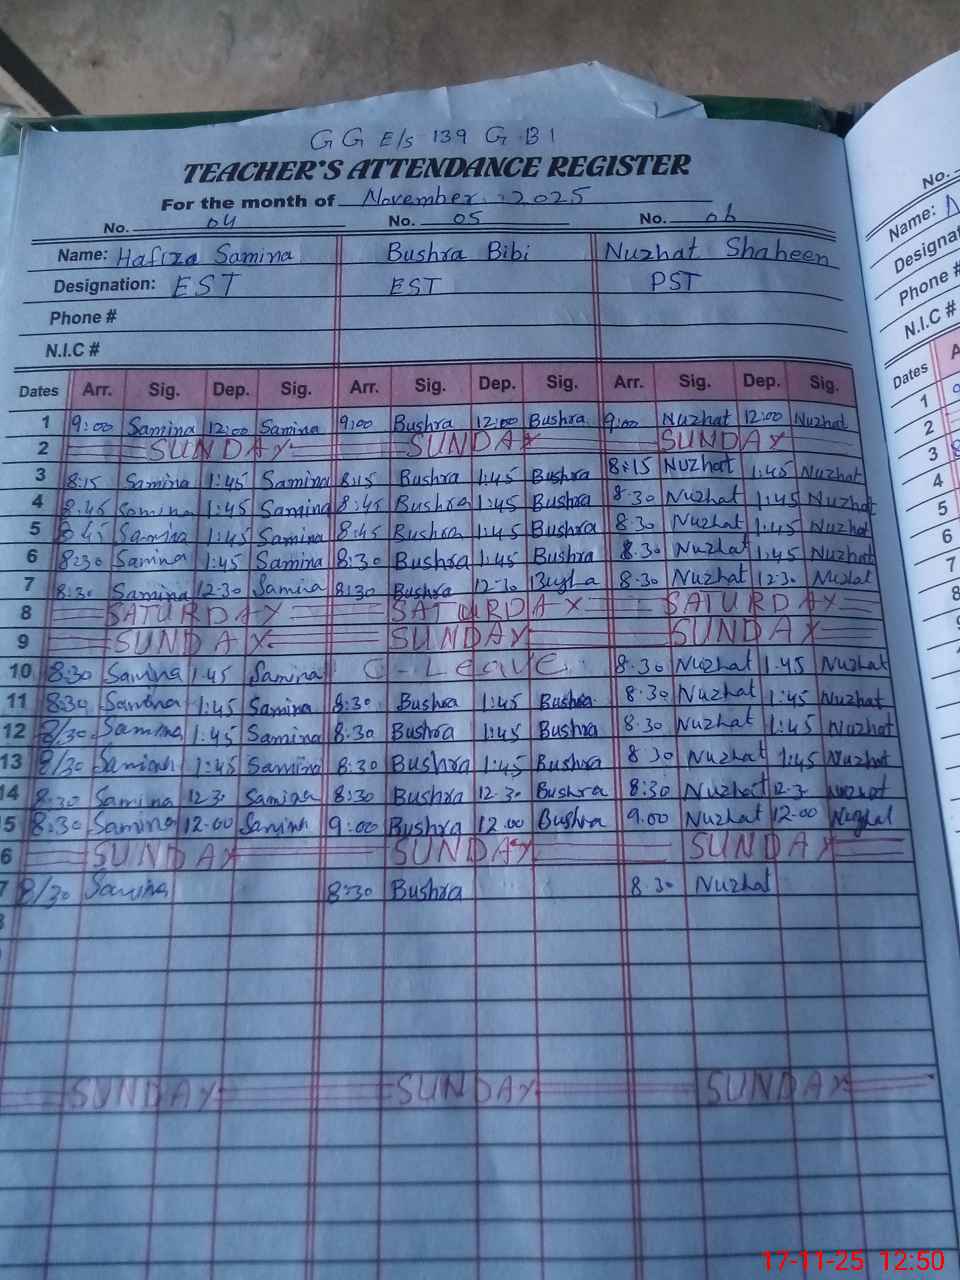 G G E/s 139 G B 1
TEACHER'S ATTENDANCE REGISTER
For the month of November 2025
No. 04 No. 05 No. 06
Name: Hafiza Samina Bushra Bibi Nuzhat Shaheen
Designation: EST EST PST
Phone #
N.I.C #
Dates Arr. Sig. Dep. Sig. Arr. Sig. Dep. Sig. Arr. Sig. Dep. Sig.
1 9:00 Samina 12:00 Samina 9:00 Bushra 12:00 Bushra 9:00 Nuzhat 12:00 Nuzhat
2 SUNDAY SUNDAY SUNDAY
3 8:15 Samina 1:45 Samina 8:15 Bushra 1:45 Bushra 8:15 Nuzhat 1:45 Nuzhat
4 8:45 Samina 1:45 Samina 8:45 Bushra 1:45 Bushra 8:30 Nuzhat 1:45 Nuzhat
5 8:45 Samina 1:45 Samina 8:45 Bushra 1:45 Bushra 8:30 Nuzhat 1:45 Nuzhat
6 8:30 Samina 1:45 Samina 8:30 Bushra 1:45 Bushra 8:30 Nuzhat 1:45 Nuzhat
7 8:30 Samina 12:30 Samina 8:30 Bushra 12:30 8:30 Nuzhat 12:30
8 SATURDAY SATURDAY SATURDAY
9 SUNDAY SUNDAY SUNDAY
10 8:30 Samina 1:45 Samina C-Leave 8:30 Nuzhat 1:45 Nuzhat
11 8:30 Samina 1:45 Samina 8:30 Bushra 1:45 Bushra 8:30 Nuzhat 1:45 Nuzhat
12 8/30 Samina 1:45 Samina 8:30 Bushra 1:45 Bushra 8:30 Nuzhat 1:45 Nuzhat
13 8/30 Samina 1:45 Samina 8:30 Bushra 1:45 Bushra 8:30 Nuzhat 1:45 Nuzhat
14 8:30 Samina 12:30 Samina 8:30 Bushra 12:30 Bushra 8:30 Nuzhat 12:3 Nuzhat
5 8:30 Samina 12:00 Samina 9:00 Bushra 12:00 Bushra 9:00 Nuzhat 12:00 Nuzhat
6 SUNDAY SUNDAY SUNDAY
7 8/30 Samina 8:30 Bushra 8:30 Nuzhat
SUNDAY SUNDAY SUNDAY
No.
Name:
Designat
Phone #
N.I.C #
Dates
1
2
3
4
5
6
7
8
17-11-25 12:50